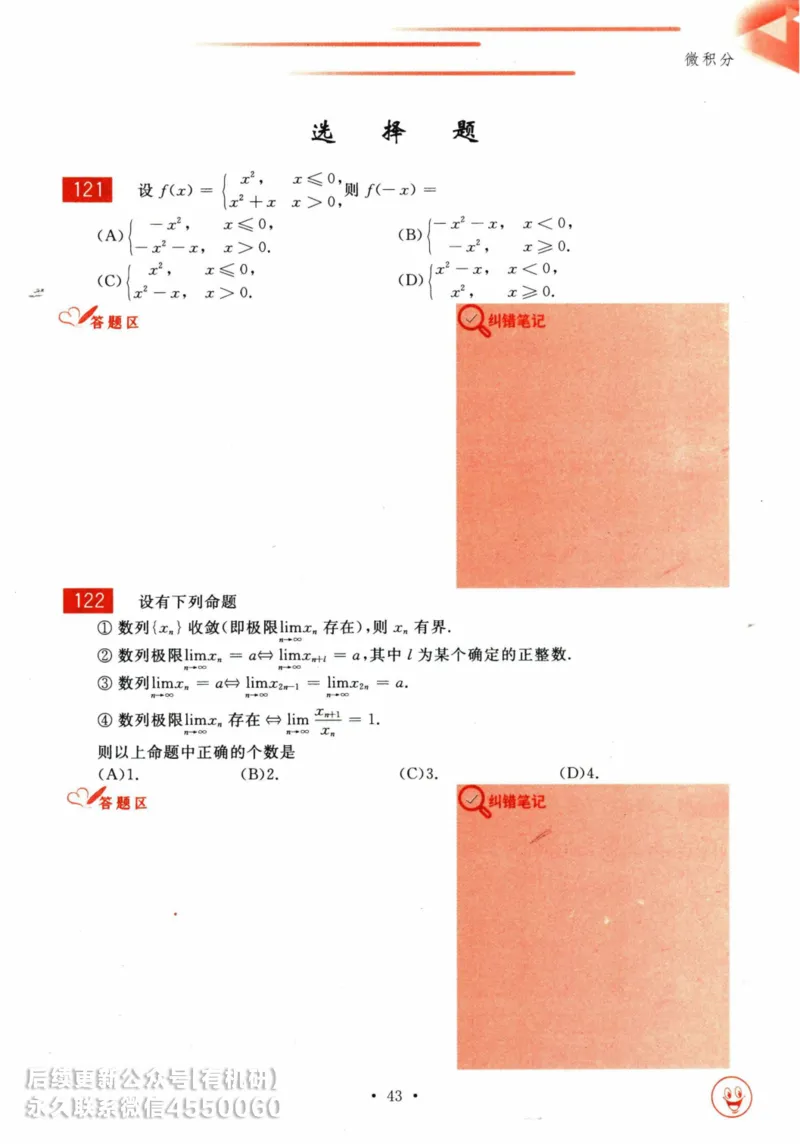 微积分
选 择 题
121 设 f(x) = { x², x ⩽ 0, x² + x x > 0, 则 f(−x) =
(A) { −x², x ⩽ 0, −x² − x, x > 0. (B) { −x² − x, x < 0, −x², x ⩾ 0.
(C) { x², x ⩽ 0, x² − x, x > 0. (D) { x² − x, x < 0, x², x ⩾ 0.
答题区 纠错笔记
122 设有下列命题
① 数列{xₙ} 收敛(即极限lim_{n→∞} xₙ 存在),则 xₙ 有界.
② 数列极限lim_{n→∞} xₙ = a⇔ lim_{n→∞} xₙ₊ₗ = a,其中 l 为某个确定的正整数.
③ 数列lim_{n→∞} xₙ = a⇔ lim_{n→∞} x₂ₙ₋₁ = lim_{n→∞} x₂ₙ = a.
④ 数列极限lim_{n→∞} xₙ 存在 ⇔ lim_{n→∞} xₙ₊₁/xₙ = 1.
则以上命题中正确的个数是
(A)1. (B)2. (C)3. (D)4.
答题区 纠错笔记
后续更新公众号[有机研]
永久联系微信4550060
• 43 •